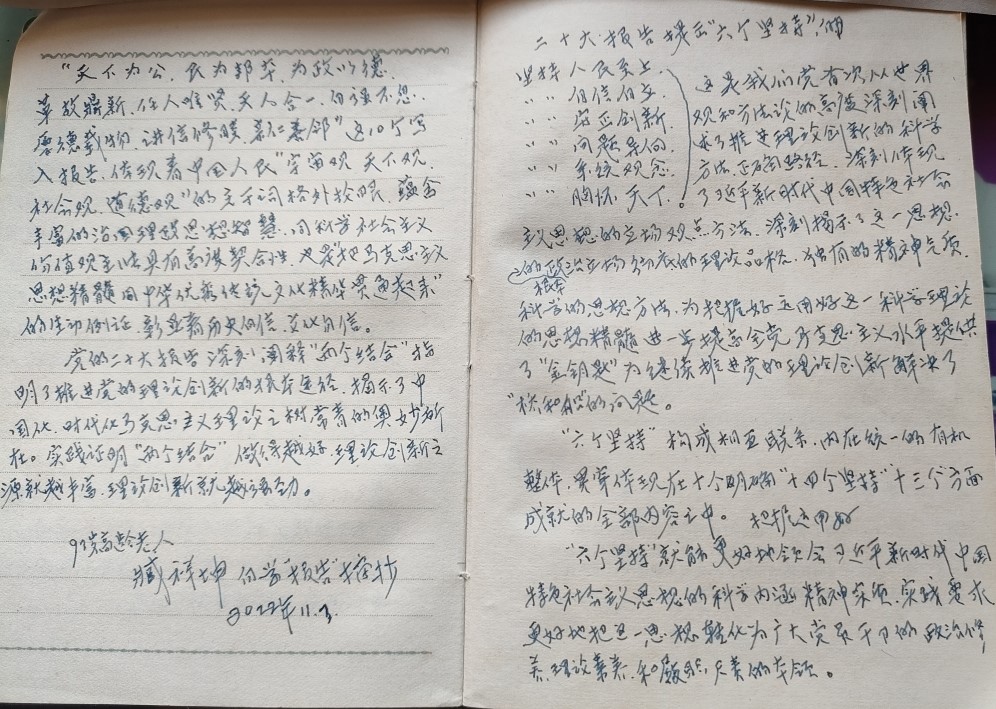 "天下为公、民为邦本、为政以德、
革故鼎新、任人唯贤、天人合一、自强不息、
厚德载物、讲信修睦、亲仁善邻"这10个写
入报告、体现着中国人民"宇宙观、天下观、
社会观、道德观"的 格外 蕴含
丰富的治国理政思想智慧、同科学社会主义
价值观主张具有高度契合性、也是"把马克思主义
思想精髓同中华优秀传统文化精华贯通起来"
的生动例证、彰显着历史自信、文化自信。
党的二十大报告深刻阐释"两个结合"指
明了推进党的理论创新的根本途径、揭示了中
国化、时代化马克思主义理论之树常青的奥妙所
在。实践证明"两个结合"做得越好、理论创新之
源就越丰富、理论创新就越活动。
93岁高龄老人
臧祥坤 自学报告摘抄
2022年11.3.
二十大报告提出"六个坚持"的
坚持人民至上、
〃 〃 自信自立、
〃 〃 守正创新、
〃 〃 问题导向、
〃 〃 系统观念、
〃 〃 胸怀天下。
这是我们党首次从世界
观和方法论的高度深刻阐
述了推进理论创新的科学
方法、正确路径、深刻体现
了习近平新时代中国特色社会
主义思想的立场观点方法、深刻揭示了这一思想
的政治立场 彻底的理论品格、独有的精神气质、
根本
科学的思想方法、为把握好运用好这一科学理论
的思想精髓进一步提高全党马克思主义水平提供
了"金钥匙"为继续推进党的理论创新解决了
"桥和船"的问题。
"六个坚持"构成相互联系、内在统一的有机
整体、贯穿体现在十个明确"十四个坚持"十三个方面
成就的全部内容之中。把握运用好
"六个坚持"就能更好地领会习近平新时代中国
特色社会主义思想的科学内涵精神实质、实践要求
更好地把这一思想转化为广大党员干部的政治修
养、理论素养、和 的本领。